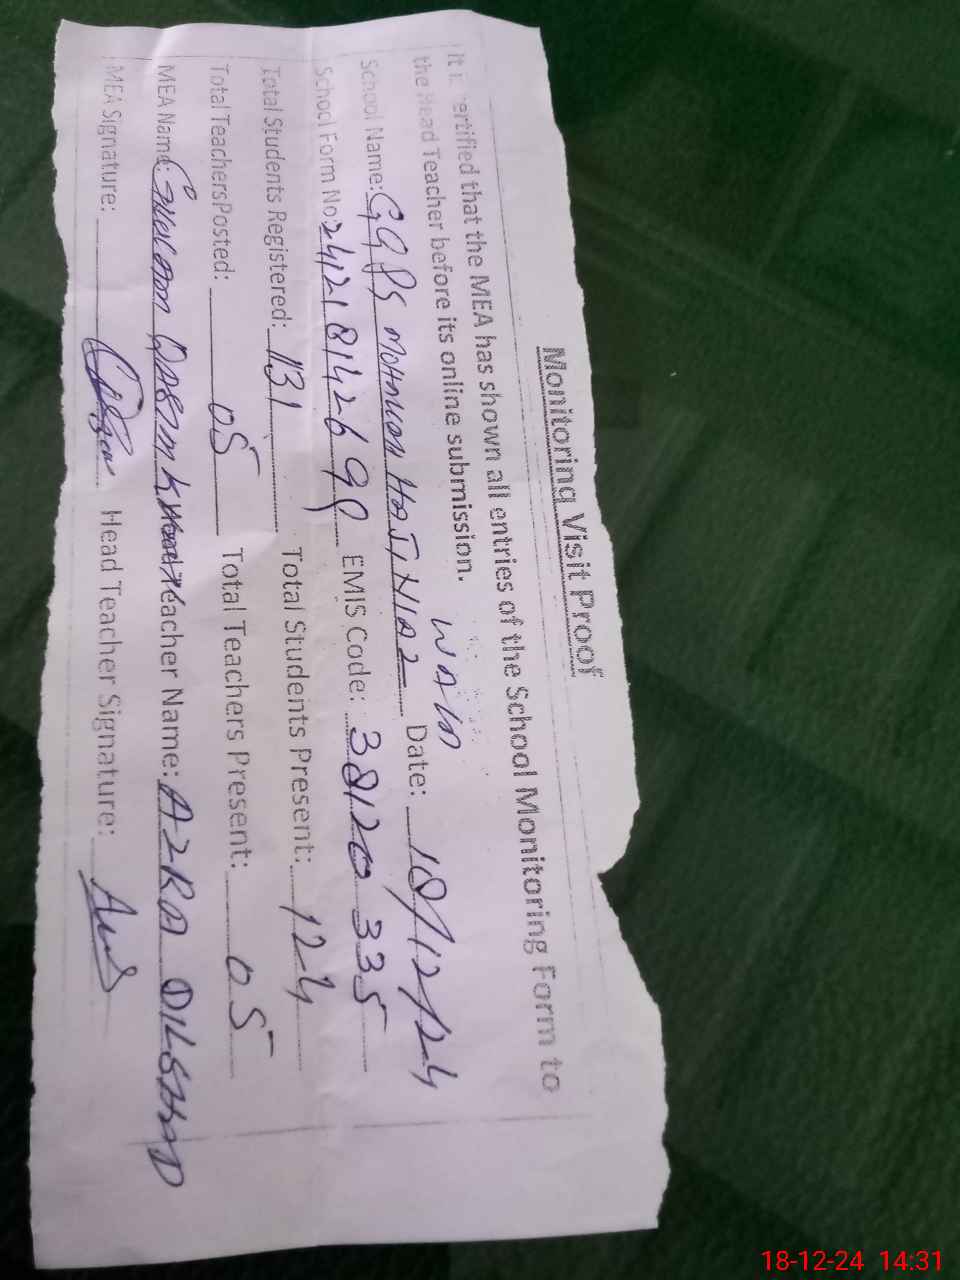 Monitoring Visit Proof
It is certified that the MEA has shown all entries of the School Monitoring Form to
the Head Teacher before its online submission.
School Name: GGPS MOHMLAH HAJI NIAZ Date: 18/12/24
School Form No: EMIS Code: 38120335
Total Students Registered: 131 Total Students Present: 124
Total TeachersPosted: 05 Total Teachers Present: 05
MEA Name: Teacher Name: AZRA DILSHAD
MEA Signature: Head Teacher Signature:
18-12-24 14:31